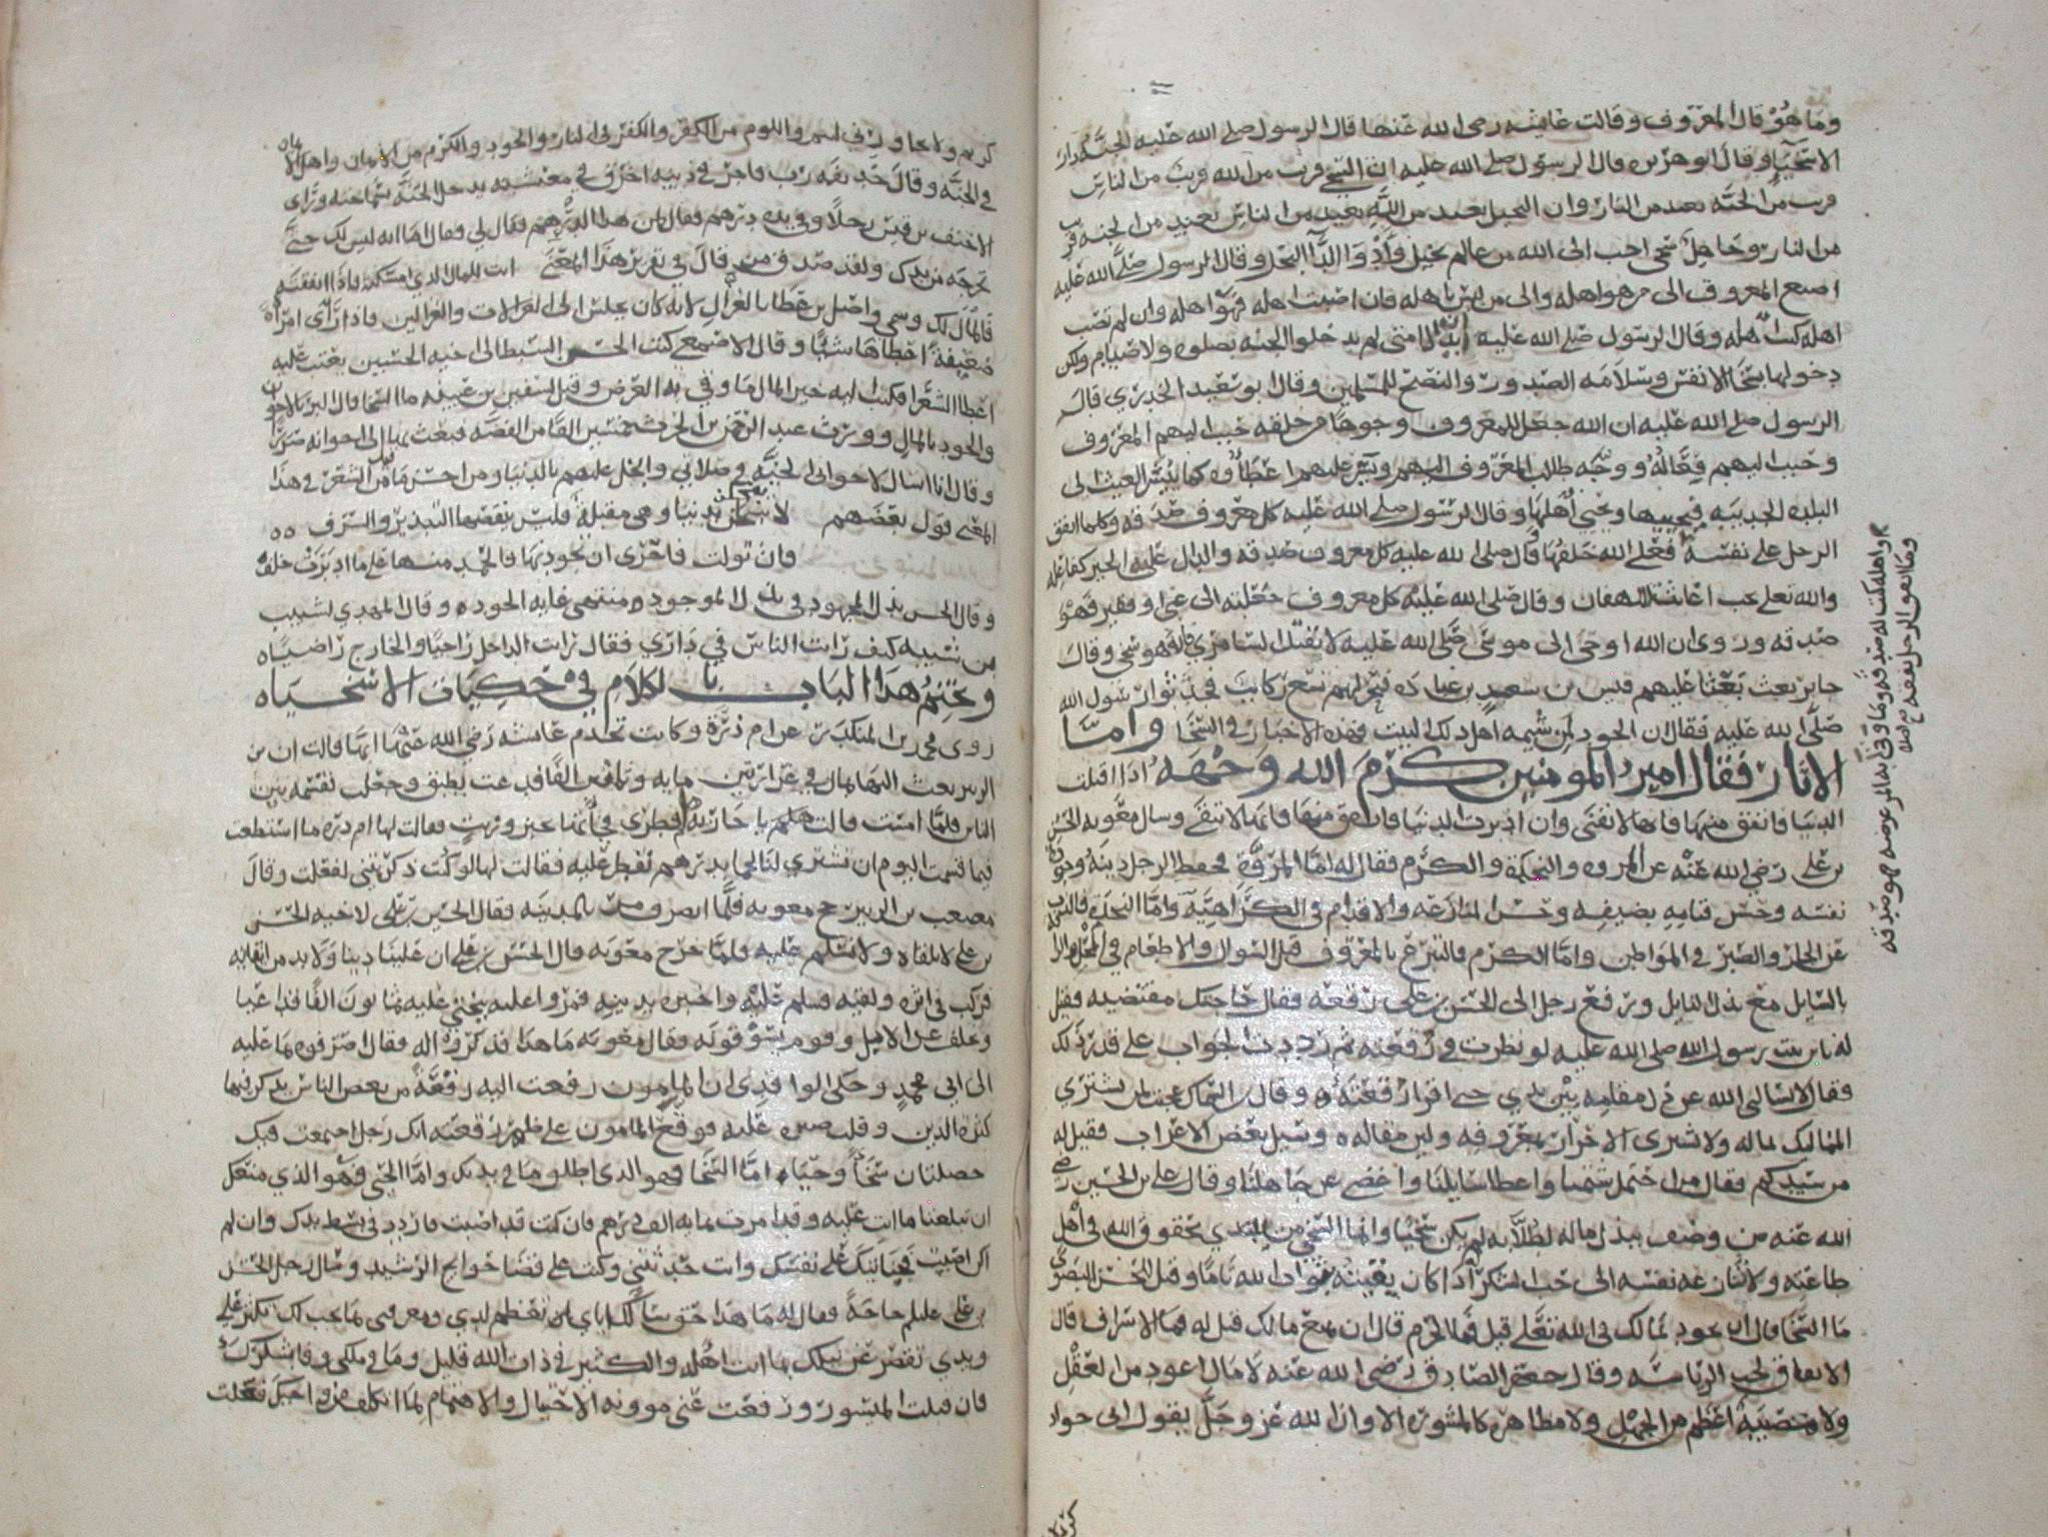 وما هو قال المعروف وقالت عائشه رضى الله عنها قال الرسول صلى الله عليه الجنه دار
الاسخيا وقال ابو هريره قال الرسول صلى الله عليه ان السخي قريب من الله قريب من الناس
قريب من الجنه بعيد من النار وان البخيل بعيد من الله بعيد من الناس بعيد من الجنه قريب
من النار وجاهل سخي احب الى الله من عالم بخيل وادوا الدآ البخل وقال الرسول صلى الله عليه
اصنع المعروف الى من هو اهله والى من ليس باهله فان اصبت اهله فهو اهله وان لم تصب
اهله كنت اهله وقال الرسول صلى الله عليه ان بدلا امتى لم يدخلوا الجنه بصلوه ولا صيام ولكن
دخولها بسخا الانفس وسلامه الصدور والنصح للمسلمين وقال ابو سعيد الخدري قال
الرسول صلى الله عليه ان الله جعل للمعروف وجوها من خلقه حبب اليهم المعروف
وحبب اليهم فعاله ووجه طلاب المعروف اليهم ويسر عليهم اعطاوه كما ييسر الغيث الى
البلده الجدبيه فيحييها ويحيي اهلها وقال الرسول صلى الله عليه كل معروف صدقه وكلما انفق
الرجل على نفسه فعلى الله خلفها وقال صلى الله عليه كل معروف صدقه والدال على الخير كفاعله
والله تعلى يحب اغاثة اللهفان وقال صلى الله عليه كل معروف جعلته الى غني او فقير فهو
صدقه وروى ان الله اوحى الى موسى صلى الله عليه لا تقتل السامري فانه سخي وقال
جابر بعث بعثا عليهم قيس بن سعد بن عباده فنحر لهم تسع ركايب فحدثوا رسول الله
صلى الله عليه فقال ان الجود لمن شيمه اهل ذلك البيت فهذه الاخبار في السخا واما
الاثار فقال امير المومنين كرم الله وجهه اذا اقبلت
الدنيا فانفق منها فانها لا تفنى وان ادبرت الدنيا فانفق منها فانها لا تبقى وسال معويه الحسن
بن على رضي الله عنه عن المروه والنجده والكرم فقال له اما المروة فحفظ الرجل دينه وحوزه
نفسه وحسن قيامه بضيفه وحسن المنازعه والاقدام في الكراهيه واما النجده فالذب
عن الجار والصبر في المواطن واما الكرم فالتبرع بالمعروف قبل السوال والاطعام في المحل والرا
بالسايل مع بذل النايل ورفع رجل الى الحسن بن على رقعه فقال حاجتك مقضيه فقيل
له يابن بنت رسول الله صلى الله عليه لو نظرت في رقعته ثم رددت الجواب على قدر ذلك
فقال لا يسالنى الله عن ذل مقامه بين يدي حتى اقرا رقعته وقال بن السماك عجبت لمن يشتري
المماليك بماله ولا يشترى الاحرار بمعروفه ولين مقاله وسيل بعض الاعراب فقيل له
من سيدكم فقال من احتمل شتمنا واعطا سايلنا واغضى عن جاهلنا وقال على بن الحسين رضي
الله عنه من وصف ببذل ماله لطلابه لم يكن سخيا وانما السخي من يبتدي بحقوق الله في اهل
طاعته ولا تنازعه نفسه الى حب الشكر اذا كان يقينه بثواب الله تاما وقيل للحسن البصري
ما السخا قال ان تجود بمالك في الله تعلى قيل فما الحزم قال ان تمنع مالك قيل له فما الاسراف قال
الانفاق لحب الرياسه وقال جعفر الصادق رضى الله عنه لا مال اعود من العقل
ولا مصيبه اعظم من الجهل ولا مظاهره كالمشوره الا وان الله عز وجل يقول اني جواد
واهله كتب له صدقه وما وقى به المر عرضه فهو صدقه
وما انفق الرجل نفقه صح اصله
كريم ولا يجاورني لئيم واللوم من الكفر والكفر في النار والجود والكرم من الايمان واهل الايمان
في الجنه وقال حذيفه رب فاجر في دينه اخرق في معيشته يدخل الجنه بسماحته وراى
الاحنف بن قيس رجلا وفي يده درهم فقال لمن هذا الدرهم فقال لي فقال اما انه ليس لك حتى
تخرجه من يدك ولقد صدق من قال في تقرير هذا المعنى انت للمال اذا امسكته فاذا انفقته
فالمال لك وسمي واصل بن عطا بالغزال لانه كان يجلس الى الغزالات والغزالين فاذا راى امراة
ضعيفة اعطاها شيا وقال الاصمعي كتب الحسن السبط الى اخيه الحسين يعتب عليه
اعطا الشعرا فكتب اليه خير المال ما وقي به العرض وقيل لسفين بن عيينه ما السخا قال البر بالاخوان
والجود بالمال وورث عبد الرحمن بن الحرث خمسين الفا من الفضه فبعث بها الى اخوانه صررا
وقال انا اسال لاخواني الجنه في صلاتي وابخل عليهم بالدنيا ومن احسن ما قيل من الشعر في هذا
المعنى قول بعضهم لا تبخلن بدنيا وهي مقبلة فليس ينقصها التبذير والسرف
فان تولت فاحرى ان تجود بها فالحمد منها على ما ادبرت خلف
وقال الحسن بذل المجهود في بذل الموجود منتهى غايه الجود وقال المهدي لشبيب
بن شيبه كيف رايت الناس في داري فقال رايت الداخل راجيا والخارج راضيا
ونختم هذا الباب بالكلام في حكايات الاسخياه
روى محمد بن المنكدر عن ام ذرة وكانت تخدم عائشه رضي الله عنها انها قالت ان بن
الزبير بعث اليها بمال في غرارتين مايه وثمانين الفا فدعت بطبق وجعلت تقسمه بين
الناس فلما امست قالت هلم يا جاريه فطري فجأتها بخبز وزيت فقالت لها ام دره ما استطعت
فيما قسمت اليوم ان تشتري لنا لحما بدرهم نفطر عليه فقالت لها لو كنت ذكرتيني لفعلت وقال
مصعب بن الزبير حج معويه فلما انصرف مر بالمدينه فقال الحسين بن على لاخيه الحسن
بن على لا تلقاه ولا تسلم عليه فلما خرج معويه قال الحسن بن على ان علينا دينا ولا بد من اتيانه
فركب في اثره ولقيه فسلم عليه واخبره بدينه فمروا عليه ببختي عليه ثمانون الفا قد اعيا
وتخلف عن الابل وقوم يسوقونه فقال معويه ما هذا فذكروه له فقال اصرفوه بما عليه
الى ابي محمد وحكى الواقدي ان المامون رفعت اليه رقعة من بعض الناس يذكر فيها
كثره الدين وقلت صبره عليه فوقع المامون على ظهر رقعته انك رجل اجتمعت فيك
خصلتان سخا وحياء اما السخا فهو الذي اطلق ما في يديك واما الحيى فهو الذي منعك
ان تبلغنا ما انت عليه وقد امرت لك بمايه الف درهم فان كنت قد اصبت فازدد في بسط يدك وان لم
اكن اصبت فجنايتك على نفسك وانت حدثتني وكنت على قضا حوايج الرشيد وسال رجل الحسن
بن على عليلم حاجة فقال له ما هذا حق سالك اياي يعظم لدي ومعرفتي بما يجب لك يكبر علي
ويدي تقصر عن نيلك بما انت اهله والكثير في ذات الله قليل وما في ملكي وفا بشكرك
فان قبلت الميسور ورفعت عني موونه الاحتيال والاهتمام لما اتكلف من واجبك فعلت